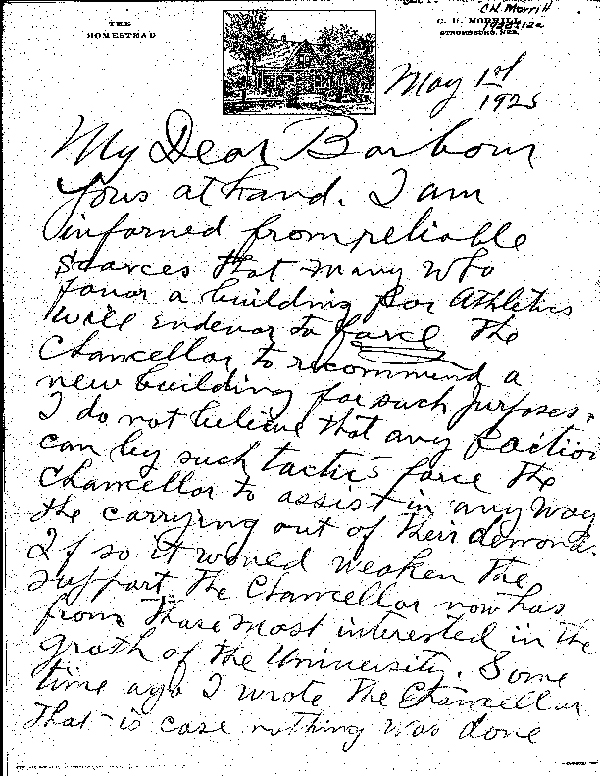 C.H. Morrill
THE
HOMESTEAD
C. H. MORRILL
STROMSBURG, NEB.
May 1st
1925
My Dear Barbour
Yours at hand. I am
informed from reliable
sources that many who
favor a building for Athletics
will endevor to force the
Chancellor to recommend a
new building for such purposes.
I do not believe that any faction
can by such tactics force the
Chancellor to assist in any way
the carrying out of their demands.
If so it would weaken the
support the Chancellor now has
from those most interested in the
groath of the University. Some
time ago I wrote the Chancellor
that in case nothing was done